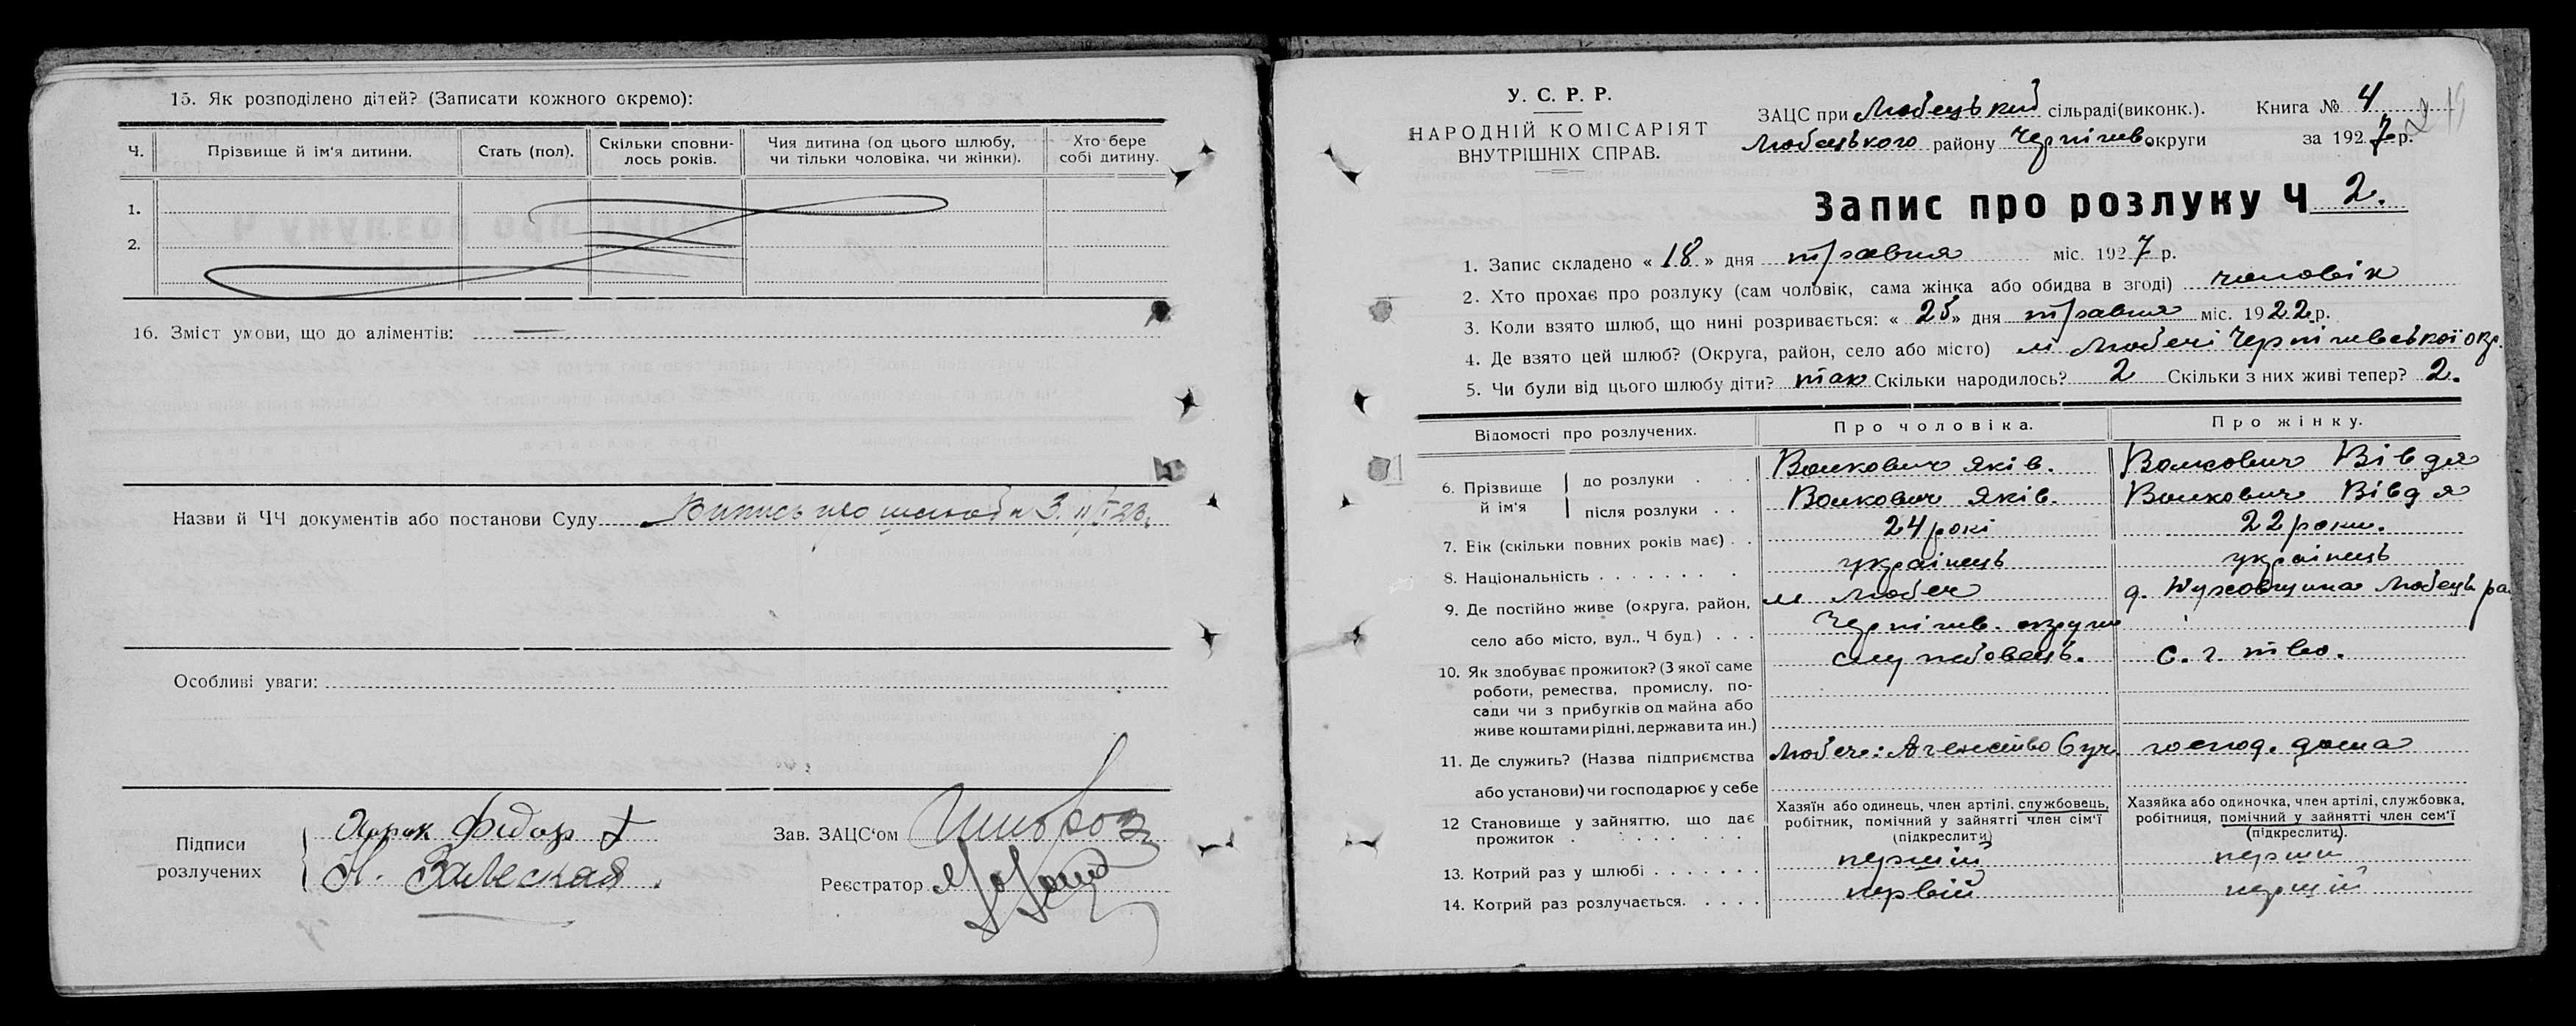 15. Як розподілено дітей? (Записати кожного окремо):
Ч. Прізвище й ім'я дитини. Стать (пол). Скільки сповнилось років. Чия дитина (од цього шлюбу, чи тільки чоловіка, чи жінки). Хто бере собі дитину.
1.
2.
16. Зміст умови, що до аліментів:
Назви й ЧЧ документів або постанови Суду
Особливі уваги:
Підписи розлучених
Федор
Залеская
Зав. ЗАЦС'ом
Реєстратор
У. С. Р. Р.
НАРОДНІЙ КОМІСАРІЯТ
ВНУТРІШНІХ СПРАВ.
ЗАЦС при Любецький сільраді (виконк.). Книга № 4
Любецького району Чернігів округи за 1927 р.
Запис про розлуку Ч 2.
1. Запис складено « 18 » дня травня міс. 1927 р.
2. Хто прохає про розлуку (сам чоловік, сама жінка або обидва в згоді) чоловік
3. Коли взято шлюб, що нині розривається: « 25 » дня травня міс. 1922 р.
4. Де взято цей шлюб? (Округа, район, село або місто) м Любечі Чернігивської окр.
5. Чи були від цього шлюбу діти? так Скільки народилось? 2 Скільки з них живі тепер? 2.
Відомості про розлучених. Про чоловіка. Про жінку.
6. Прізвище й ім'я до розлуки Волкович Яків. Волкович Вівдя
після розлуки Волкович Яків. Волкович Вівдя
7. Вік (скільки повних років має) 24 рокі 22 роки.
8. Національність українець українець
9. Де постійно живе (округа, район, м Любеч
село або місто, вул., Ч буд.) Чернігив. округи
10. Як здобуває прожиток? (З якої саме службовець. с. г. тво.
роботи, ремества, промислу, по-
сади чи з прибутків од майна або
живе коштами рідні, держави та ин.)
11. Де служить? (Назва підприємства Любеч: господ. дома
або установи) чи господарює у себе
12 Становище у зайняттю, що дає прожиток
Хазяїн або одинець, член артілі, службовець, робітник, помічний у зайнятті член сім'ї (підкреслити)
Хазяйка або одиночка, член артілі, службовка, робітниця, помічний у зайнятті член сем'ї (підкреслити).
13. Котрий раз у шлюбі перший перший
14. Котрий раз розлучається. первій перший